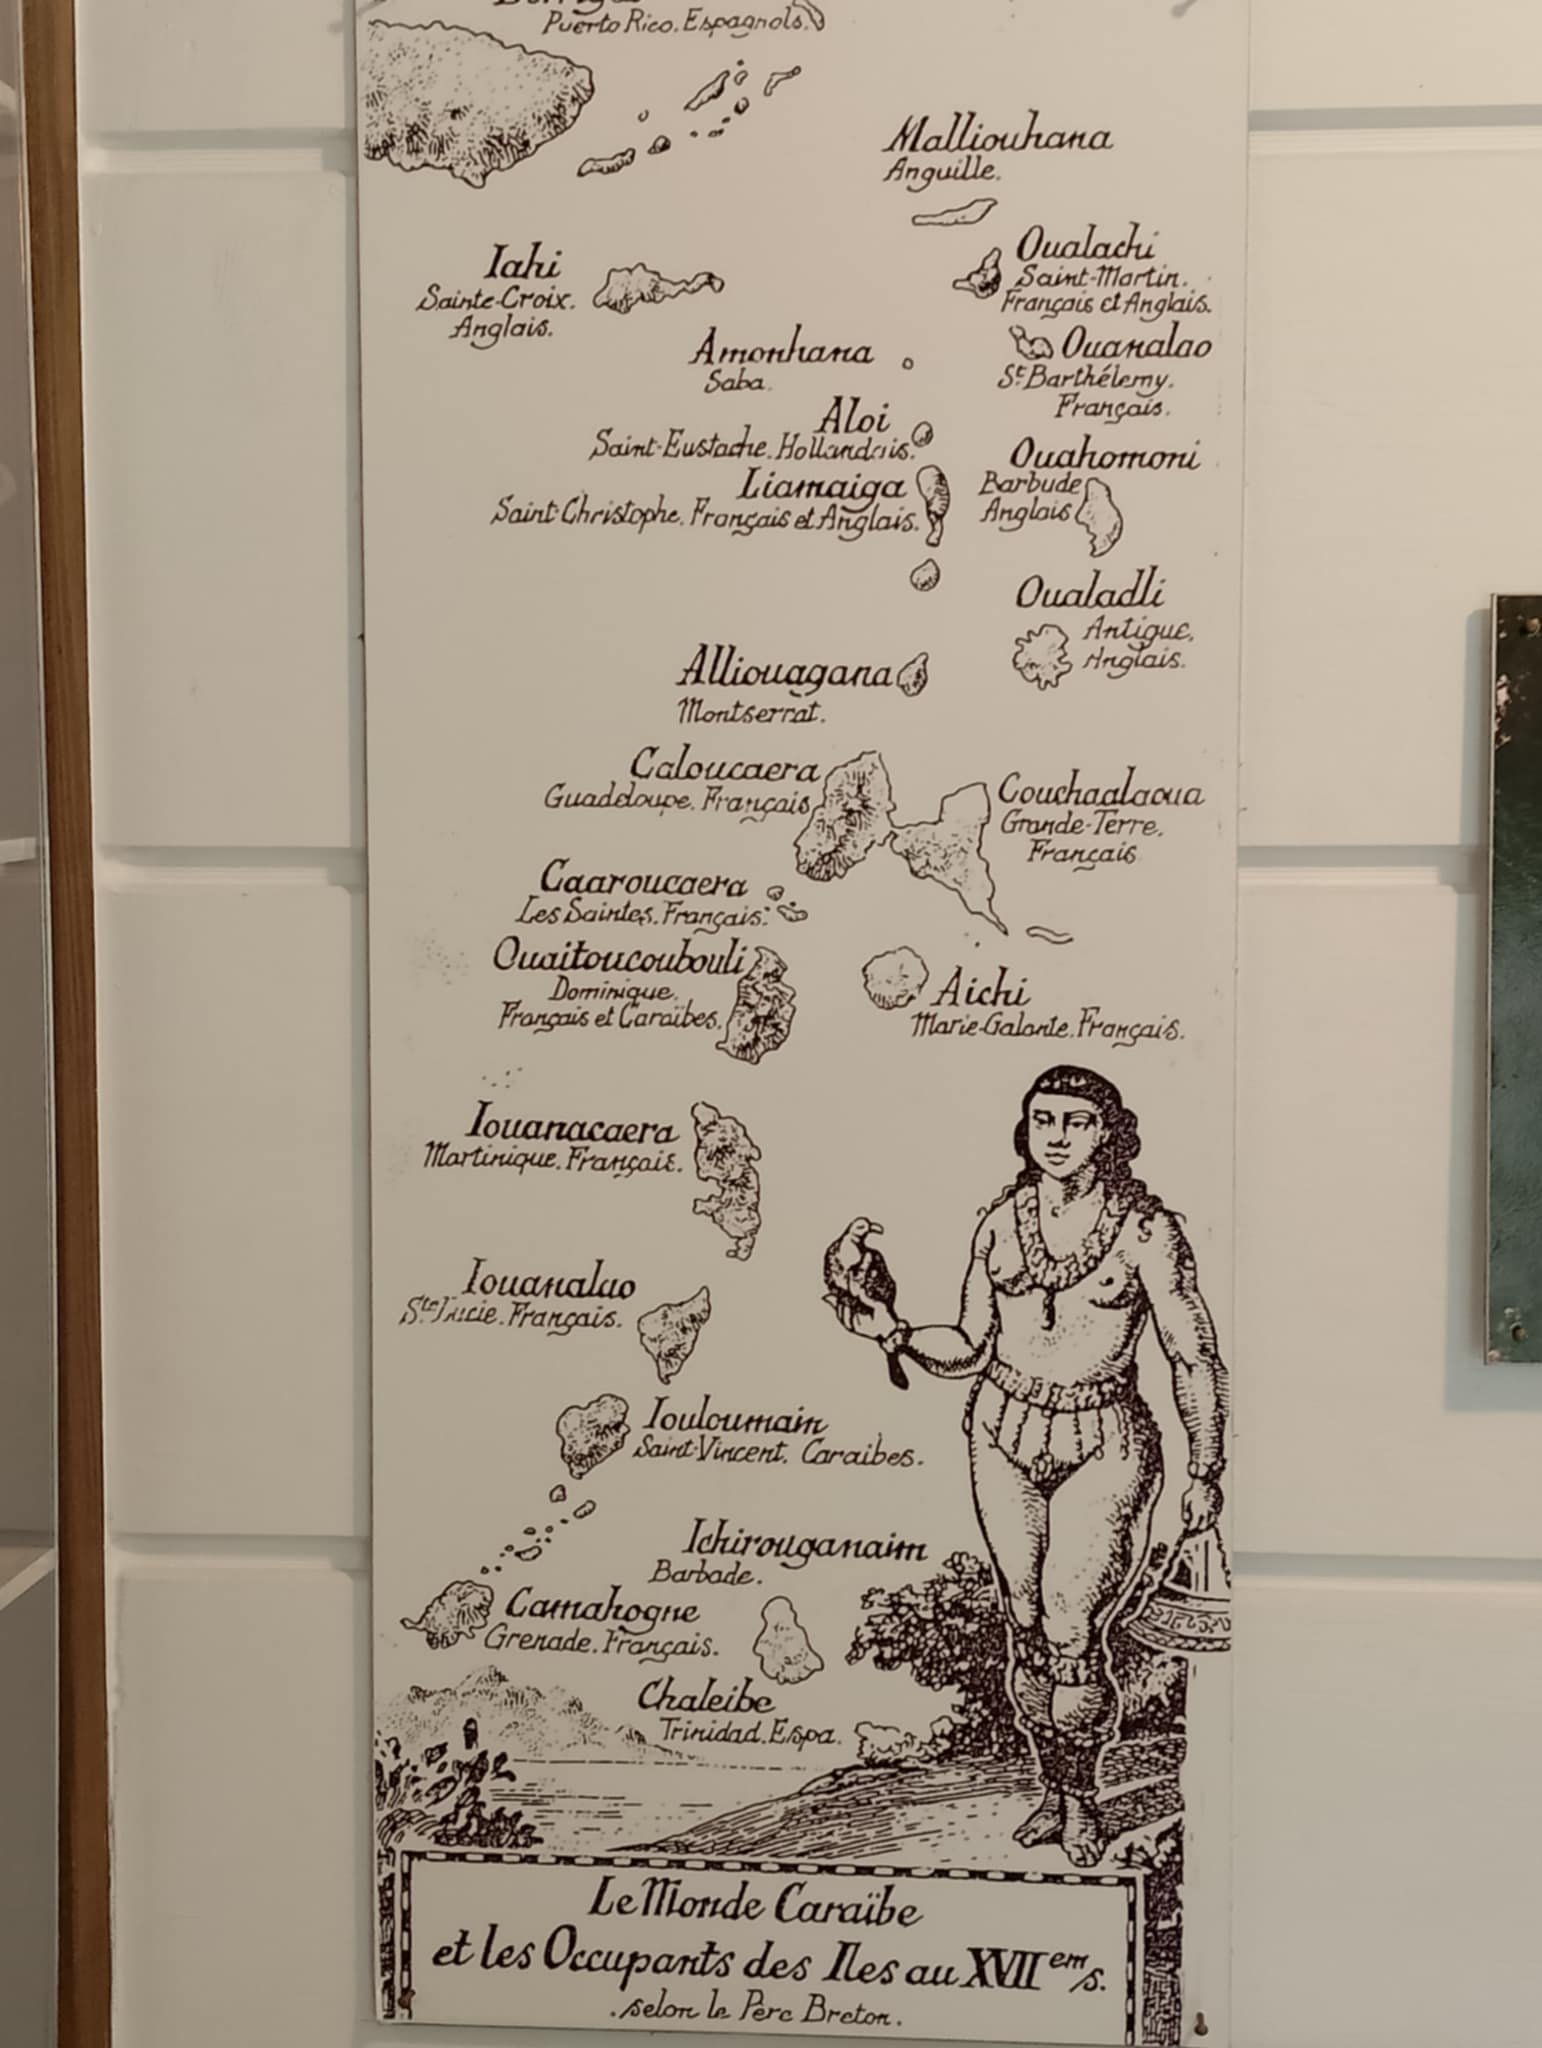 Puerto Rico. Espagnols.
Malliouhana
Anguille.
Oualachi
Saint-Martin.
Français et Anglais.
Iahi
Sainte-Croix.
Anglais.
Amonhana
Saba.
Ouanalao
St Barthélemy.
Français.
Aloi
Saint-Eustache. Hollandais.
Ouahomoni
Barbude
Anglais
Liamaiga
Saint-Christophe. Français et Anglais.
Oualadli
Antigue.
Anglais.
Alliouagana
Montserrat.
Caloucaera
Guadeloupe. Français
Couchaalaoua
Grande-Terre.
Français
Caaroucaera
Les Saintes. Français.
Ouaitoucoubouli
Dominique.
Français et Caraïbes.
Aichi
Marie-Galante. Français.
Iouanacaera
Martinique. Français.
Iouanalao
Ste Lucie. Français.
Iouloumain
Saint-Vincent. Caraibes.
Ichirouganaim
Barbade.
Camahogne
Grenade. Français.
Chaleibe
Trinidad. Espa.
Le Monde Caraïbe
et les Occupants des Iles au XVII em/s.
. selon le Père Breton.